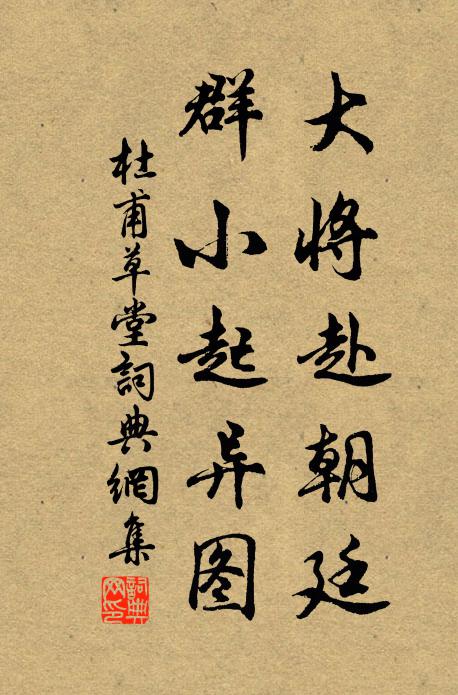 大将赴朝廷
群小起异图
杜甫草堂詞典網集
詞典网印